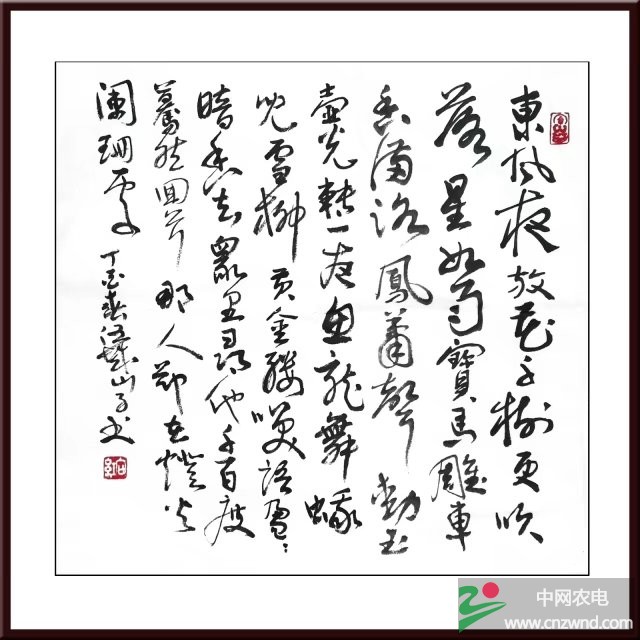 東風夜放花千樹更吹
落星如雨寶馬雕車
香滿路鳳蕭聲動玉
壺光轉一夜魚龍舞蛾
兒雪柳黃金縷笑語盈:
暗香去眾里尋他千百度
驀然回首那人卻在燈火
闌珊處 丁酉春山子书
中网农电
www.cnzwnd.com